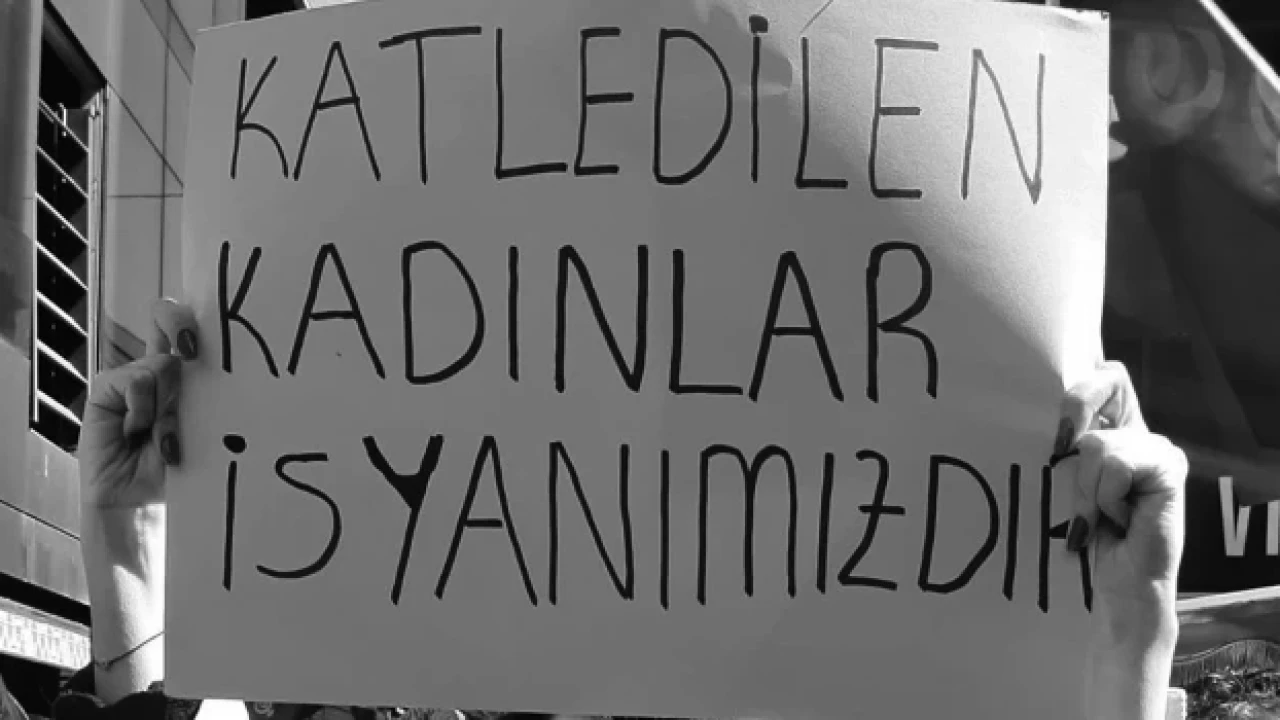 KATLEDİLEN
KADINLAR
İSYANIMIZDIR